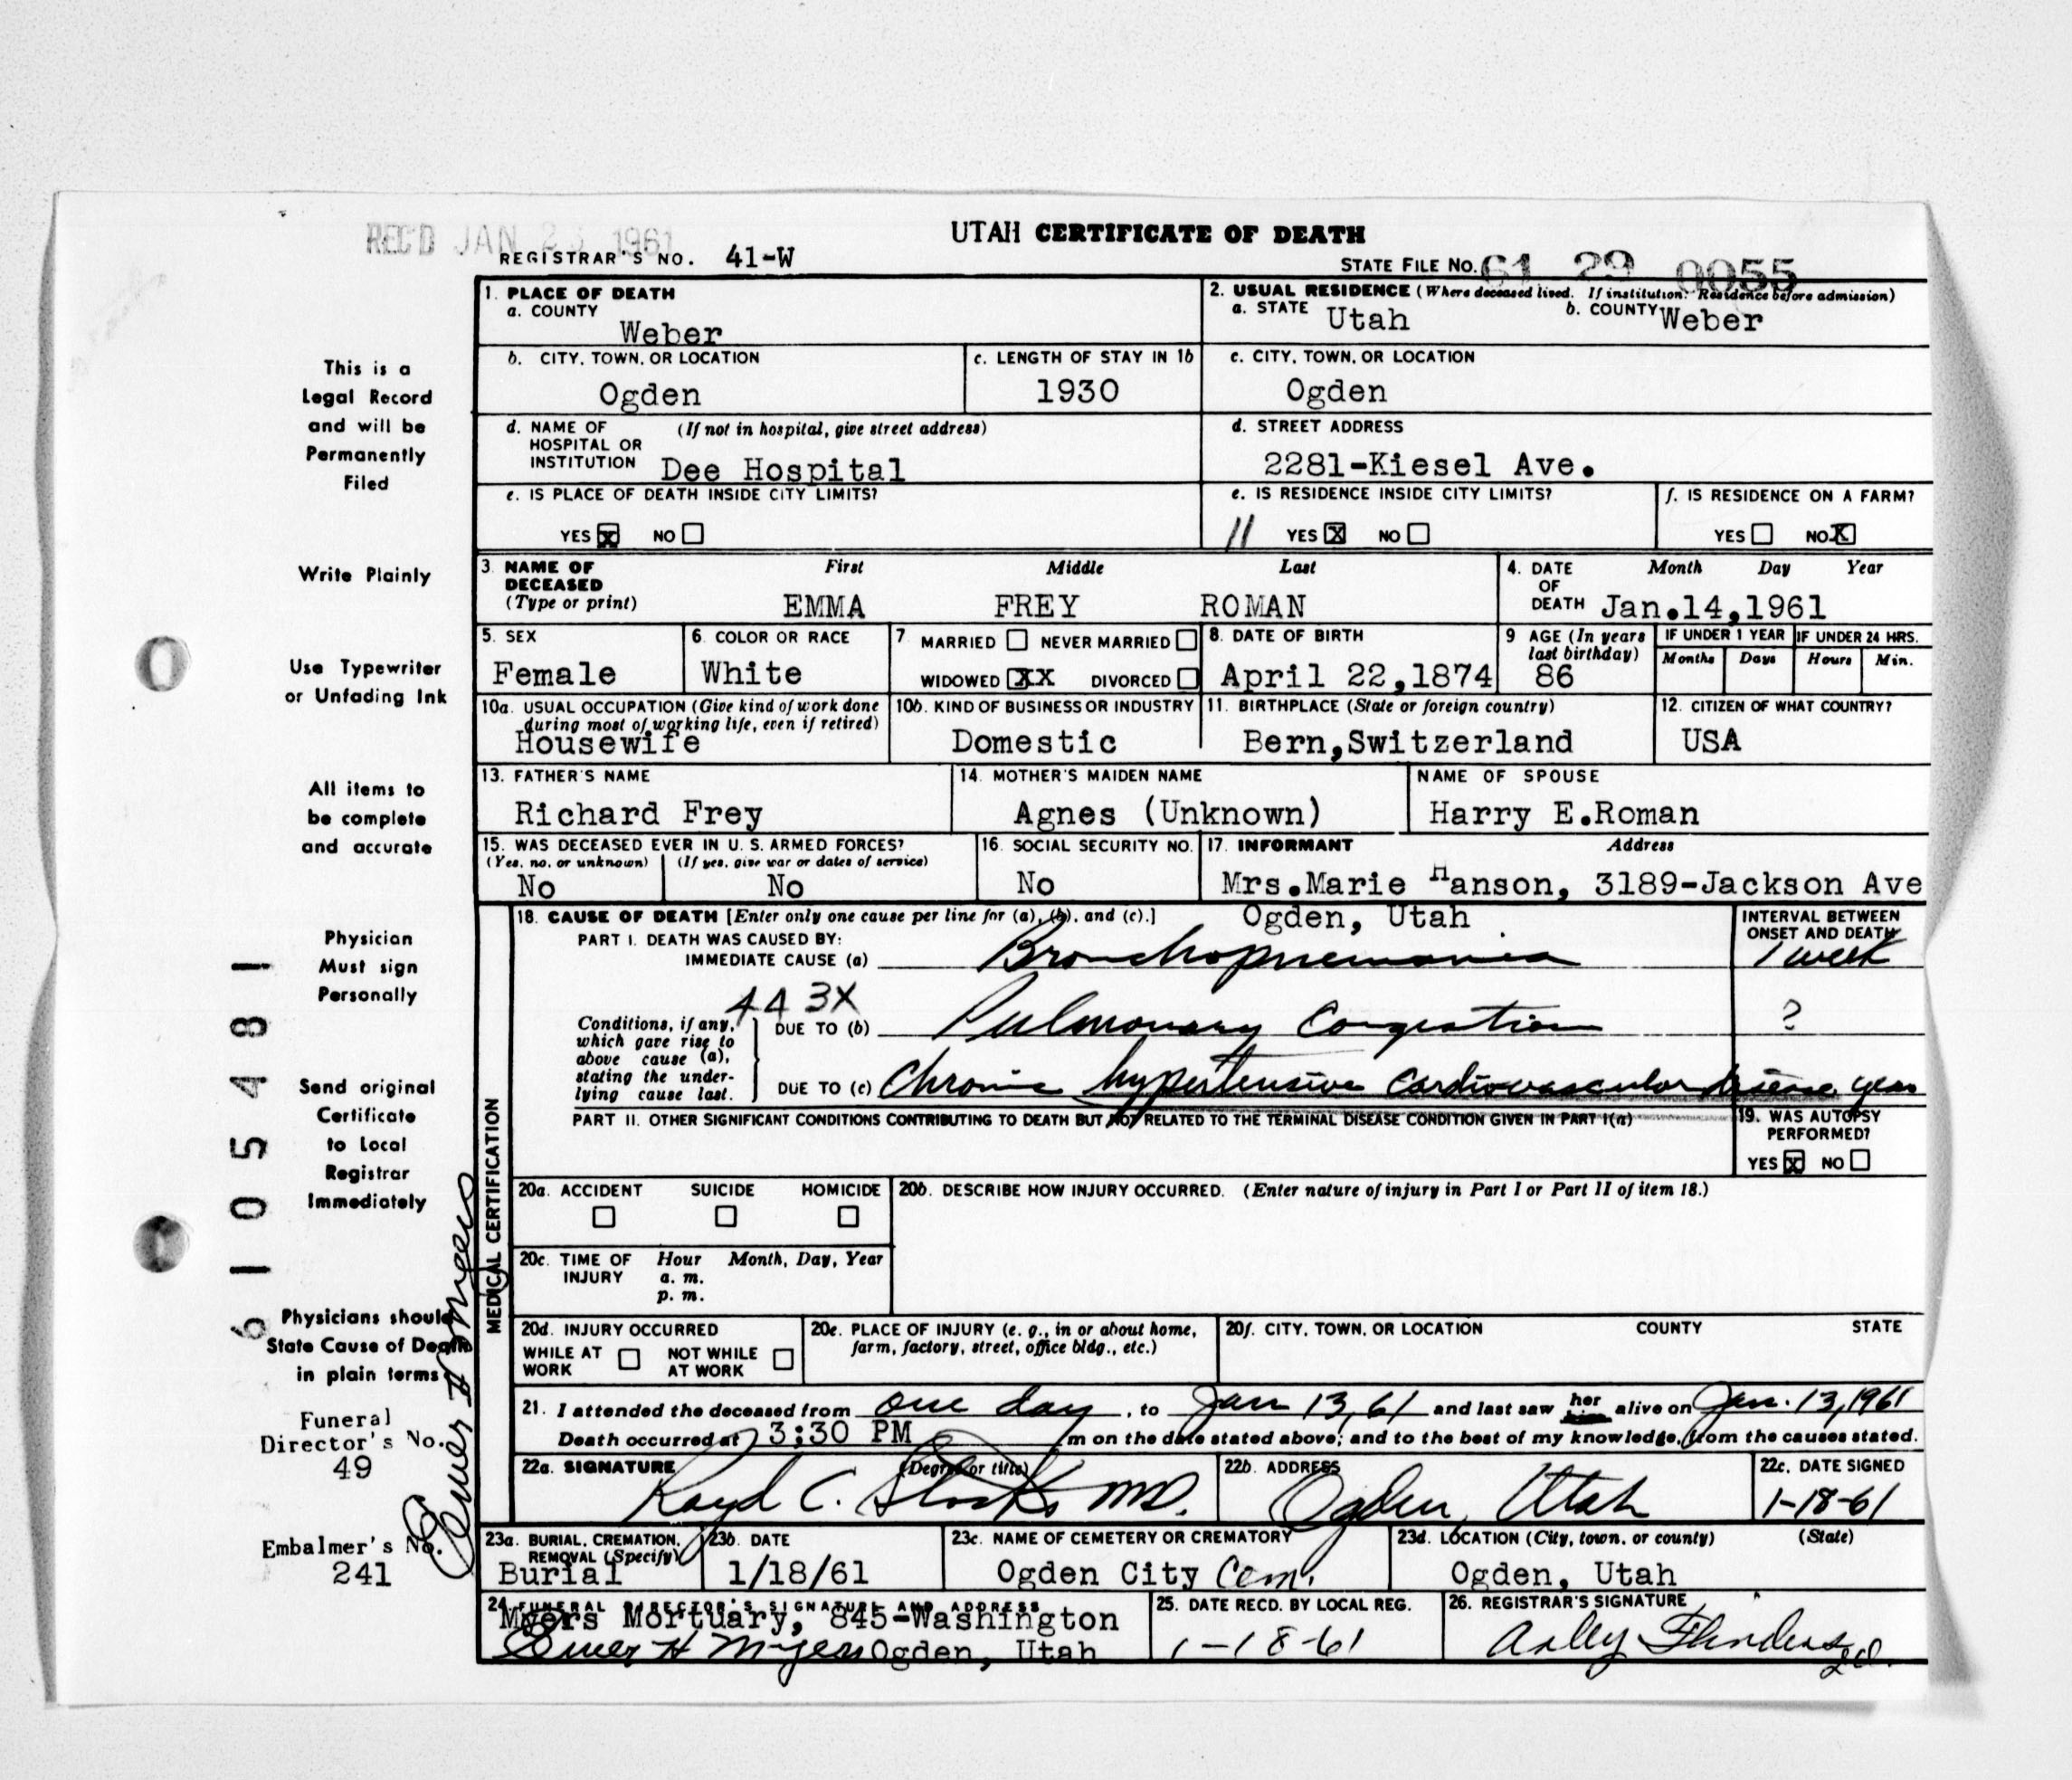 REC'D JAN 23 1961
UTAH CERTIFICATE OF DEATH
REGISTRAR'S NO. 41-W
STATE FILE NO. 61 29 0055
1. PLACE OF DEATH
a. COUNTY
Weber
2. USUAL RESIDENCE (Where deceased lived. If institution: Residence before admission)
a. STATE Utah b. COUNTY Weber
b. CITY, TOWN, OR LOCATION
Ogden
c. LENGTH OF STAY IN 1b
1930
c. CITY, TOWN, OR LOCATION
Ogden
d. NAME OF HOSPITAL OR INSTITUTION (If not in hospital, give street address)
Dee Hospital
d. STREET ADDRESS
2281-Kiesel Ave.
e. IS PLACE OF DEATH INSIDE CITY LIMITS?
YES X NO
e. IS RESIDENCE INSIDE CITY LIMITS?
11 YES X NO
f. IS RESIDENCE ON A FARM?
YES NO X
3. NAME OF DECEASED (Type or print)
First Middle Last
EMMA FREY ROMAN
4. DATE OF DEATH Month Day Year
Jan.14,1961
5. SEX
Female
6. COLOR OR RACE
White
7. MARRIED NEVER MARRIED
WIDOWED XX DIVORCED
8. DATE OF BIRTH
April 22,1874
9 AGE (In years last birthday)
86
IF UNDER 1 YEAR
Months Days
IF UNDER 24 HRS.
Hours Min.
10a. USUAL OCCUPATION (Give kind of work done during most of working life, even if retired)
Housewife
10b. KIND OF BUSINESS OR INDUSTRY
Domestic
11. BIRTHPLACE (State or foreign country)
Bern,Switzerland
12. CITIZEN OF WHAT COUNTRY?
USA
13. FATHER'S NAME
Richard Frey
14. MOTHER'S MAIDEN NAME
Agnes (Unknown)
NAME OF SPOUSE
Harry E.Roman
15. WAS DECEASED EVER IN U. S. ARMED FORCES?
(Yes, no, or unknown) (If yes, give war or dates of service)
No No
16. SOCIAL SECURITY NO.
No
17. INFORMANT Address
Mrs.Marie Hanson, 3189-Jackson Ave
Ogden, Utah
MEDICAL CERTIFICATION
18. CAUSE OF DEATH [Enter only one cause per line for (a), (b), and (c).]
INTERVAL BETWEEN ONSET AND DEATH
PART I. DEATH WAS CAUSED BY:
IMMEDIATE CAUSE (a) Bronchopneumonia 1 week
443X
Conditions, if any, which gave rise to above cause (a), stating the underlying cause last.
DUE TO (b) Pulmonary Congestion ?
DUE TO (c) Chronic hypertensive cardiovascular disease years
PART II. OTHER SIGNIFICANT CONDITIONS CONTRIBUTING TO DEATH BUT NOT RELATED TO THE TERMINAL DISEASE CONDITION GIVEN IN PART I(a)
19. WAS AUTOPSY PERFORMED?
YES X NO
20a. ACCIDENT SUICIDE HOMICIDE
20b. DESCRIBE HOW INJURY OCCURRED. (Enter nature of injury in Part I or Part II of item 18.)
20c. TIME OF INJURY Hour Month, Day, Year
a. m.
p. m.
20d. INJURY OCCURRED
WHILE AT WORK NOT WHILE AT WORK
20e. PLACE OF INJURY (e. g., in or about home, farm, factory, street, office bldg., etc.)
20f. CITY, TOWN, OR LOCATION COUNTY STATE
21. I attended the deceased from one day, to Jan 13, 61 and last saw her him alive on Jan. 13, 1961
Death occurred at 3:30 PM m on the date stated above; and to the best of my knowledge, from the causes stated.
22a. SIGNATURE (Degree or title)
C. MD.
22b. ADDRESS
Ogden, Utah
22c. DATE SIGNED
1-18-61
23a. BURIAL, CREMATION, REMOVAL (Specify)
Burial
23b. DATE
1/18/61
23c. NAME OF CEMETERY OR CREMATORY
Ogden City Cem.
23d. LOCATION (City, town, or county) (State)
Ogden, Utah
24. FUNERAL DIRECTOR'S SIGNATURE AND ADDRESS
Myers Mortuary, 845-Washington
Elmer H Myers Ogden, Utah
25. DATE RECD. BY LOCAL REG.
1-18-61
26. REGISTRAR'S SIGNATURE
Arley Flinders
This is a
Legal Record
and will be
Permanently
Filed
Write Plainly
Use Typewriter
or Unfading Ink
All items to
be complete
and accurate
Physician
Must sign
Personally
Send original
Certificate
to Local
Registrar
Immediately
Physicians should
State Cause of Death
in plain terms
Funeral
Director's No.
49
Embalmer's No.
241
6105481
Elmer H Myers